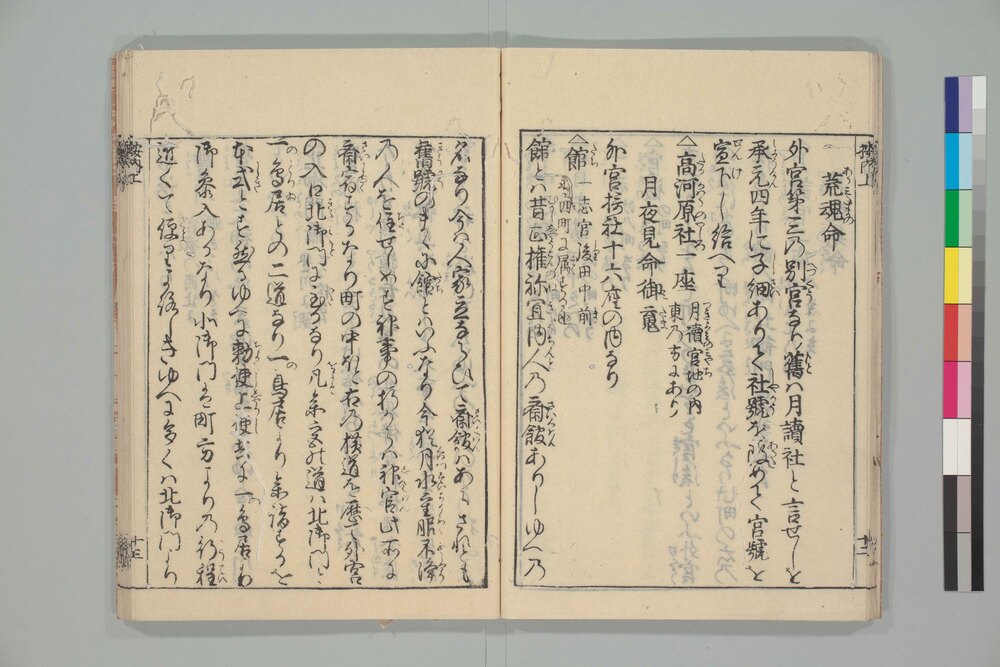 荒魂命
外宮第三の別宮なり舊ハ月讀社と言せしを
承元四年に子細ありて社號を改めて宮號を
宣下し給へり
高河原社一座 月讀宮地の内
東乃方にあり
月夜見命御霊
外宮摂社十六座の内なり
館 一志宮後田中前
野四町に属する也
館とハ昔正権祢宜内人乃斎館ありしゆへ乃
名なり今ハ人家立ならひて斎館ハあらされとも
舊號のまゝに館とハいふなり今猶月水重服不浄
乃人を住せしめす神事の折からハ神官此所に
斎宿するなり町の中程に右乃横道を歴て外宮
の入口北御門に至るなり凡参宮の道ハ北御門と
一鳥居との二道なり一鳥居より参詣するを
本式とす然るゆへに勅使上使も一鳥居より
御参入あるなり北御門ハ町方よりの行程
近くて便りよ路しきゆへに多くハ北御門より
十二
十三